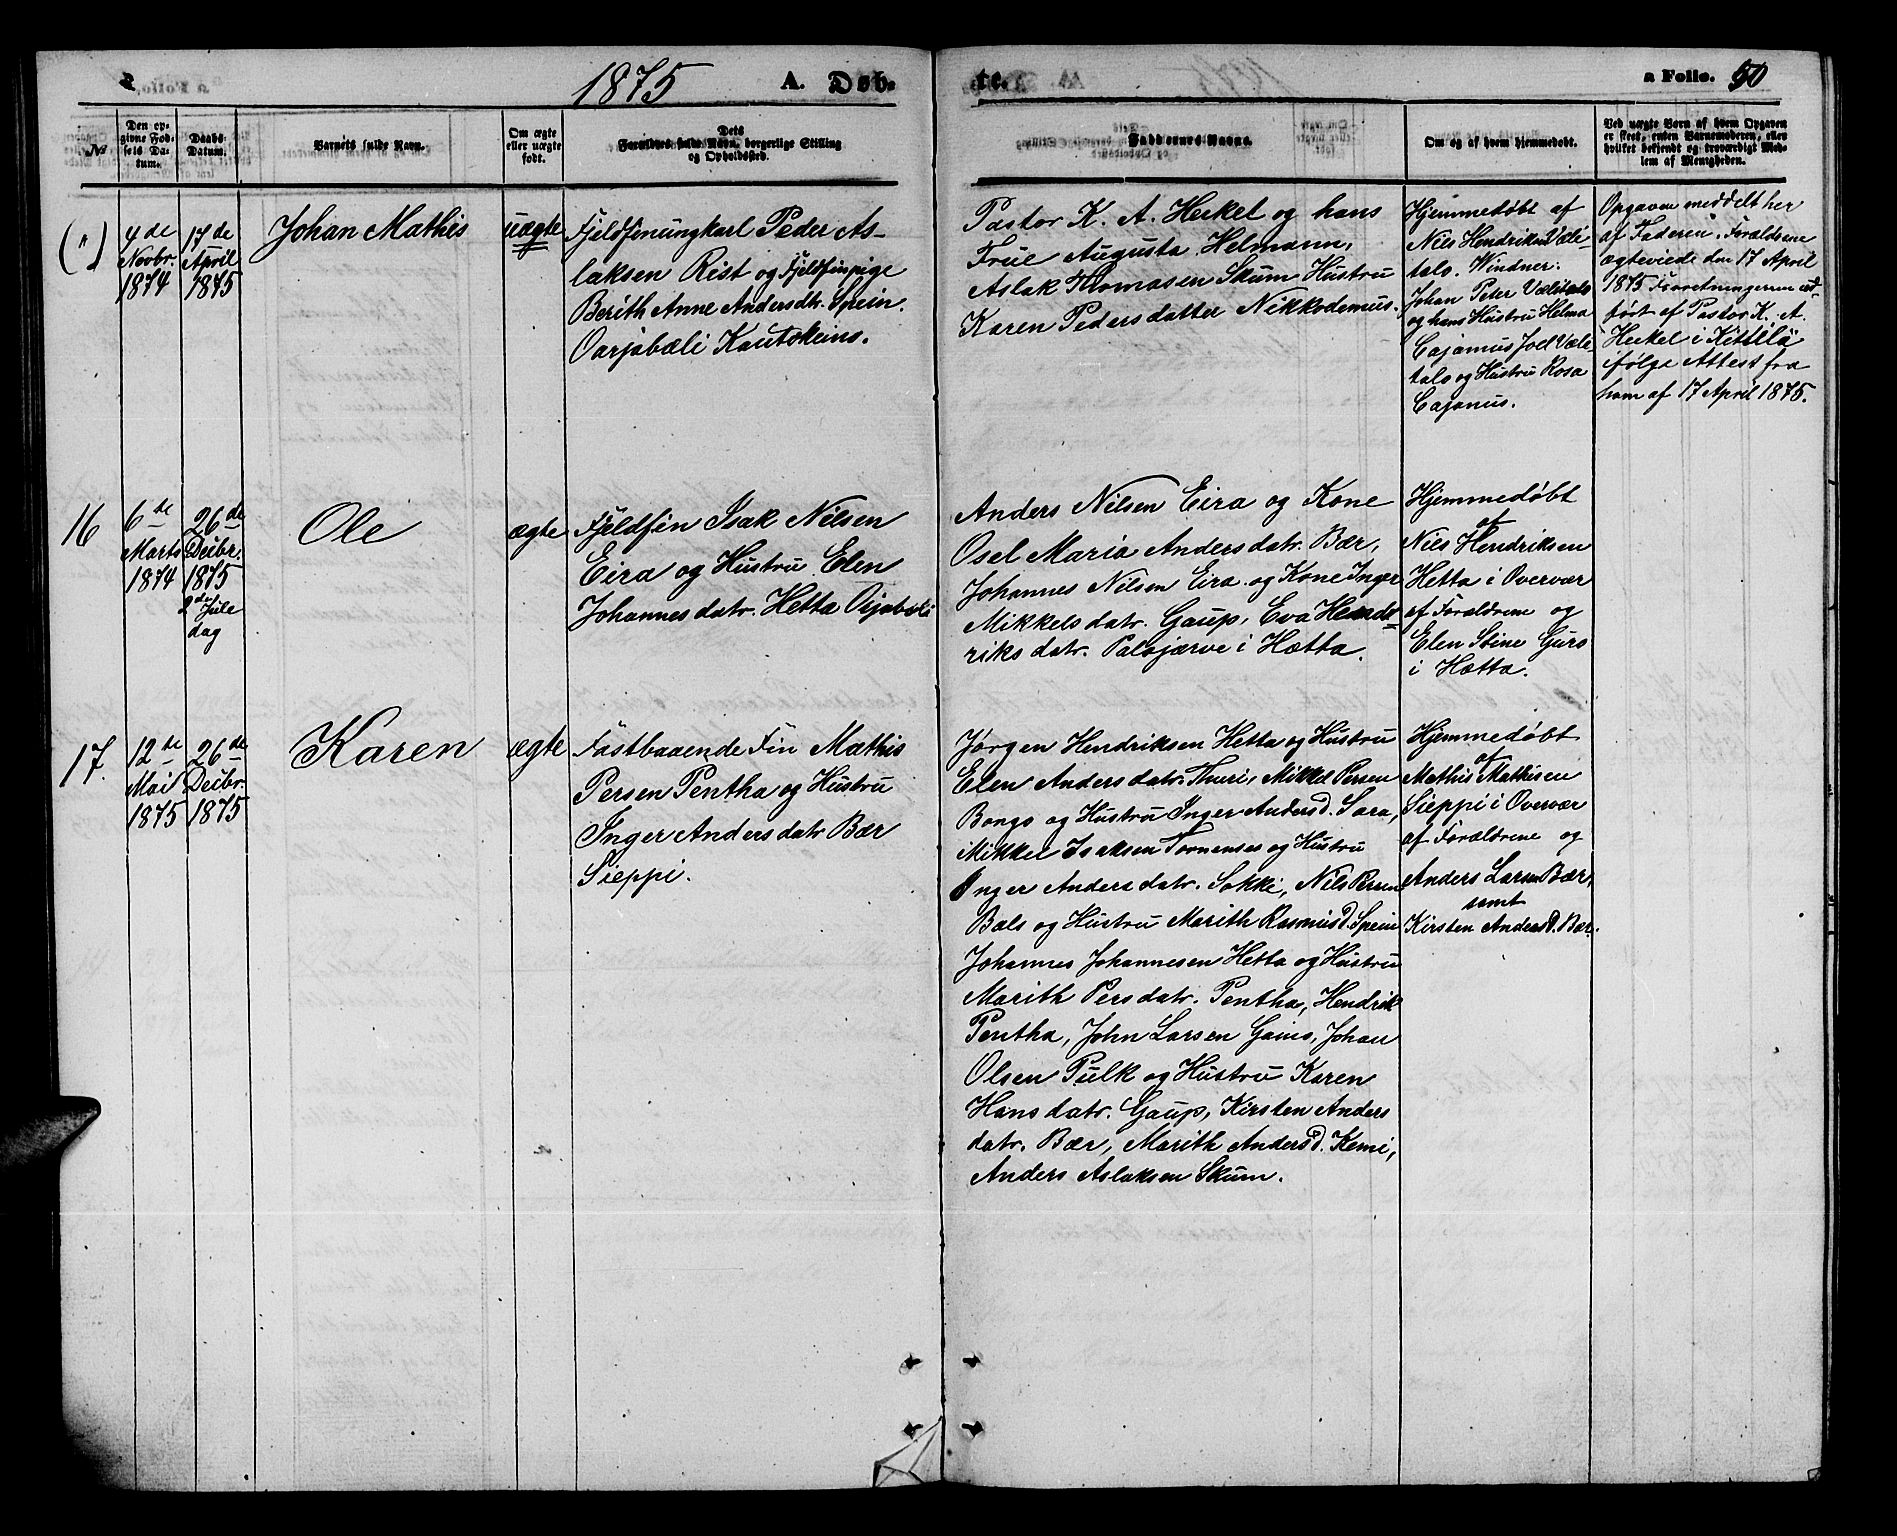 1875
A. Døb-
te.
a Folio. 50
№
Den op-
givne Fød-
sels Da-
tum.
Daabs-
Datum.
Barnets fulde Navn.
Om ægte
eller uægte
født.
Dets
Forældres fulde Navn, borgerlige Stilling
og Opholdssted.
Faddernes Navne.
Om og af hvem hjemmedøbt.
Ved uægte Børn af hvem Opgaven
er skeet, enten Barnemoderen, eller
hvilket bekjendt og troværdigt Med-
lem af Menigheden.
(")
4de
Novbr.
1874
17de
April
1875
Johan Mathis
uægte
Fjeldfinungkarl Peder As-
laksen Rist og Fjeldfinpige
Berith Anne Andersdtr. Spein.
Oarjabæli Kautokeino.
Pastor K. A. Heikel og hans
Frue Augusta Helmann,
Aslak Thomasen Skum Hustru
Karen Pedersdatter Nikkodemus.
Hjemmedøbt af
Nils Hendriksen Væli-
talo. Windner:
Johan Peter Vælitalo
og hans Hustru Helma
Cajanus Joel Væli-
talo og Hustru Rosa
Cajanus.
Opgaven meddelt her
af Faderen. Forældrene
ægteviede den 17 April
1875 Forretningerne ud-
ført af Pastor K. A.
Heikel i Kittilä
ifølge Attest fra
ham af 17 April 1875.
16
6de
Marts
1874
26de
Decbr.
1875
2den Jule
dag
Ole
ægte
Fjeldfin Isak Nilsen
Eira og Hustru Elen
Johannesdatr. Hetta
Anders Nilsen Eira og Kone
Osel Maria Andersdatr. Bær,
Johannes Nilsen Eira og Kone Inger
Mikkelsdatr. Gaup, Eva Hend-
riksdatr. Palojærve i Hætta.
Hjemmedøbt
af
Niels Hendriksen
Hetta i Overvær
af Forældrene og
Elen Stine Gurs
i Hætta.
17.
12de
Mai
1875
26de
Decbr.
1875
Karen
ægte
Fastboaende Fin Mathis
Persen Pentha og Hustru
Inger Andersdatr Bær
Sieppi.
Jørgen Hendriksen Hetta og Hustru
Elen Andersdatr. Thuri, Mikkel Persen
Bongo og Hustru Inger Andersd. Sara,
Mikkel Isaksen Tornenses og Hustru
Inger Andersdatr. Sokki, Nils Persen
Bals og Hustru Marith Rasmusd. Spein
Johannes Johannesen Hetta og Hustru
Marith Persdatr. Pentha, Hendrik
Pentha, John Larsen Gaino, Johan
Olsen Pulk og Hustru Karen
Hansdatr. Gaup, Kirsten Anders
datr. Bær, Marith Andersd. Kemi,
Anders Aslaksen Skum.
Hjemmedøbt
af
Mathis Mathisen
Sieppi i Overvær
af Forældrene og
Anders Larsen Bær,
samt
Kirsten Andersd. Bær.